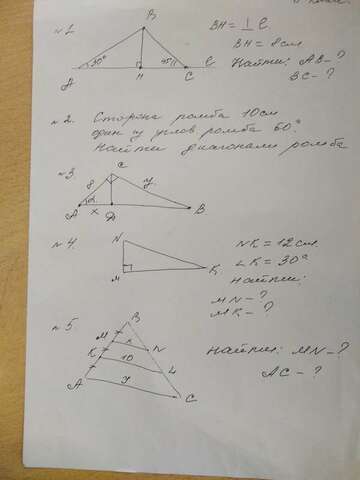 №1.
B
BH = ⊥ ℓ.
BH = 8 см
Найти: AB - ?
BC - ?
30°
45°
A
H
C
ℓ
№2. Сторона ромба 10 см
один из углов ромба 60°
Найти диагонали ромба
№3.
C
8
y
A
α
x
D
B
№4.
N
M
K
NK = 12 см
∠K = 30°
Найти:
MN - ?
MK - ?
№5
B
M
x
N
K
10
L
A
y
C
Найти: MN - ?
AC - ?